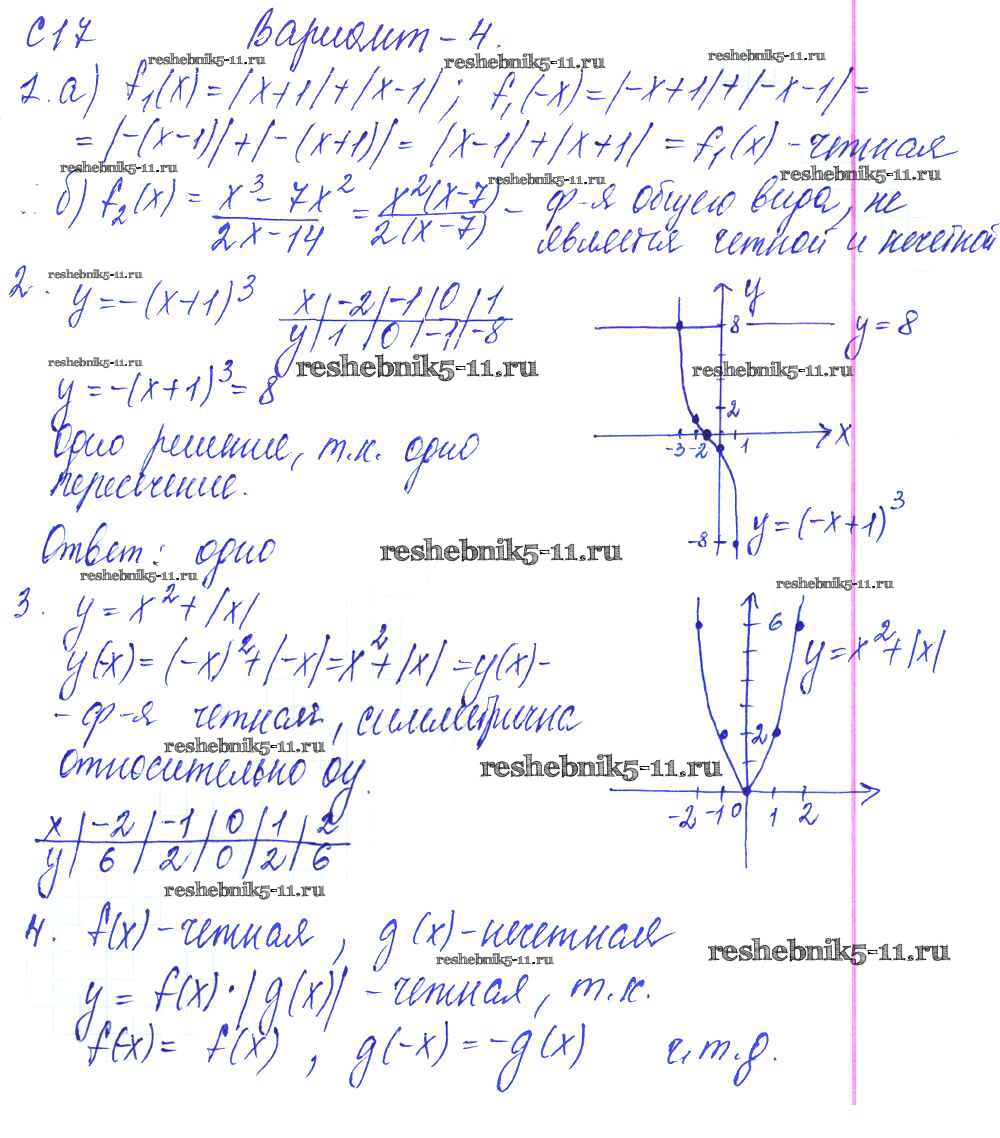 С17 Вариант - 4.
reshebnik5-11.ru reshebnik5-11.ru reshebnik5-11.ru
1. а) f₁(x) = |x+1| + |x-1| ; f₁(-x) = |-x+1| + |-x-1| =
= |-(x-1)| + |-(x+1)| = |x-1| + |x+1| = f₁(x) - четная
reshebnik5-11.ru reshebnik5-11.ru reshebnik5-11.ru
б) f₂(x) = (x³ - 7x²)/(2x-14) = x²(x-7)/2(x-7) - ф-я общего вида, не
является четной и нечетной
reshebnik5-11.ru
2. y = -(x+1)³
x | -2 | -1 | 0 | 1
y | 1 | 0 | -1 | -8
y
8
y = 8
reshebnik5-11.ru reshebnik5-11.ru reshebnik5-11.ru
y = -(x+1)³ = 8
2
одно решение, т.к. одно
x
-3 -2 1
пересечение.
-8
y = (-x+1)³
Ответ: одно
reshebnik5-11.ru
reshebnik5-11.ru reshebnik5-11.ru
3. y = x² + |x|
6
y = x² + |x|
y(-x) = (-x)² + |-x| = x² + |x| = y(x) -
- ф-я четная, симметрична
2
reshebnik5-11.ru reshebnik5-11.ru
относительно оу.
-2 -1 0 1 2
x | -2 | -1 | 0 | 1 | 2
y | 6 | 2 | 0 | 2 | 6
reshebnik5-11.ru
4. f(x) - четная, g(x) - нечетная
reshebnik5-11.ru reshebnik5-11.ru
y = f(x) · |g(x)| - четная, т.к.
f(-x) = f(x) , g(-x) = -g(x) ч.т.д.